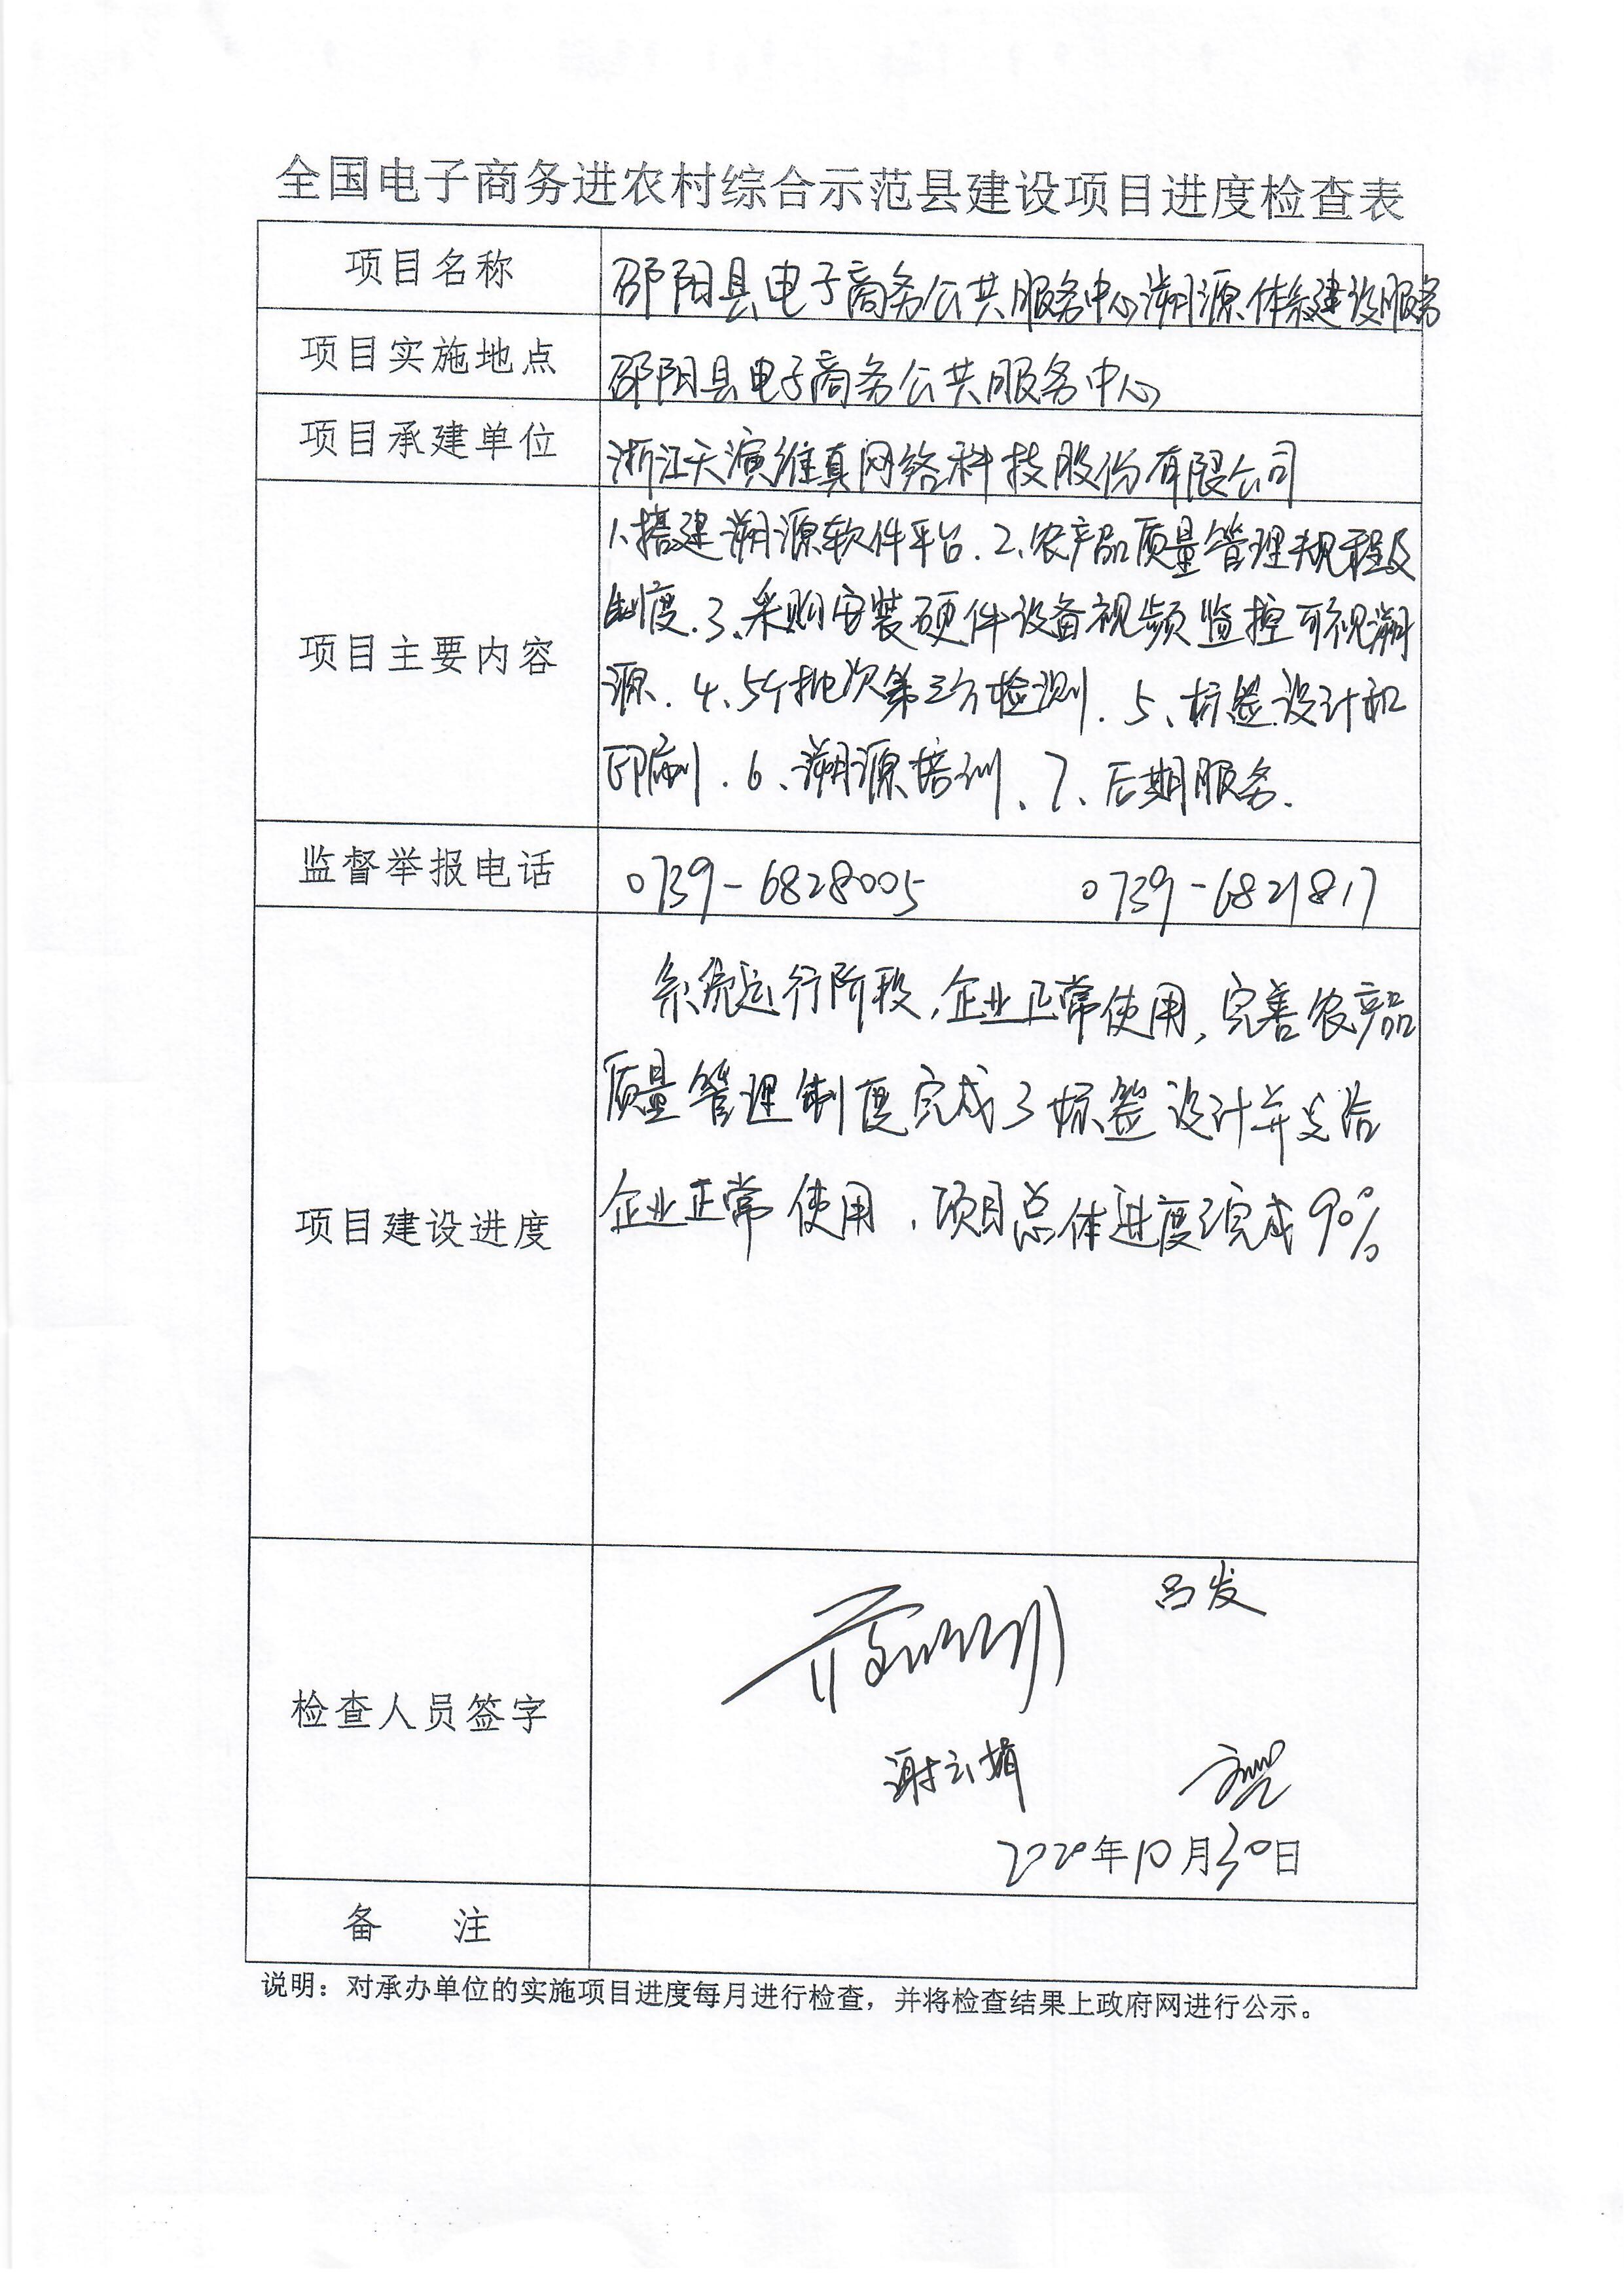 全国电子商务进农村综合示范县建设项目进度检查表
项目名称
邵阳县电子商务公共服务中心溯源体系建设服务
项目实施地点
邵阳县电子商务公共服务中心
项目承建单位
浙江天演维真网络科技股份有限公司
项目主要内容
1、搭建溯源软件平台.2、农产品质量管理规程及
制度.3、采购安装硬件设备视频监控可视溯
源.4、5个批次第三方检测.5、标签设计和
印刷.6、溯源培训、7、后期服务.
监督举报电话
0739-6828005 0739-6821817
项目建设进度
系统运行阶段,企业正常使用,完善农产品
质量管理制度完成了标签设计并交给
企业正常使用,项目总体进度完成90%
检查人员签字
吕发
谢云娟
2020年10月30日
备 注
说明：对承办单位的实施项目进度每月进行检查，并将检查结果上政府网进行公示。